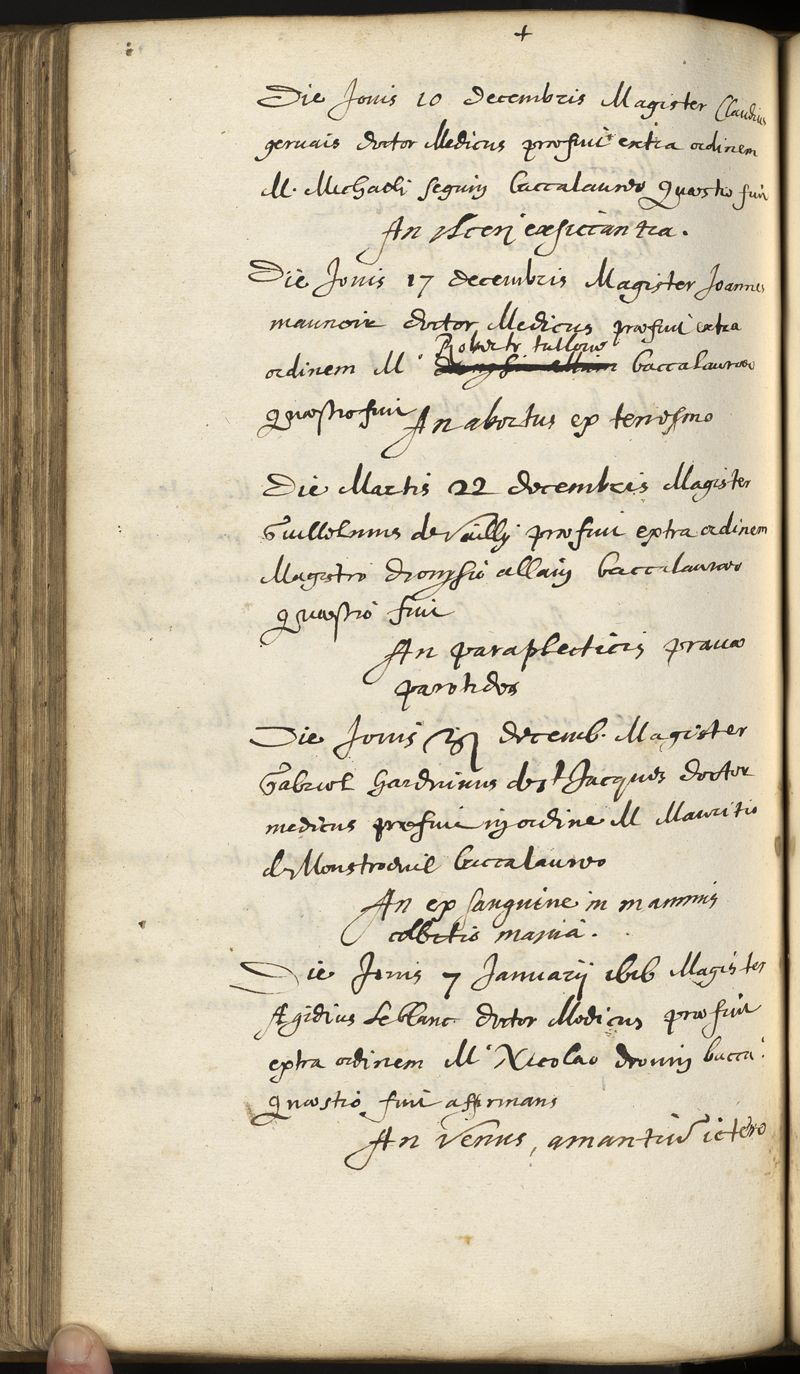 +
Die Jovis 10 decembris Magister Claudius
gervais doctor Medicus præfuit extra ordinem
M. Michaeli seguin baccalaureo Quæstio fuit
An ulceri exsiccantia.
Die Jovis 17 decembris Magister Joannes
maunoir doctor Medicus præfuit extra
Roberto tullouo
ordinem M. baccalaureo
Quæstio fuit An abortus ex tenesmo
Die Martis 22 decembris Magister
Guillelmus de Vailly præfuit extra ordinem
Magistro dionysio allain baccalaureo
quæstio fuit
An paraplecticis pravæ
parotides
Die Jovis decemb. Magister
Gabriel Harduinus de st Jacques doctor
medicus præfuit in ordine M Mauritio
de Monstreuil baccalaureo
An ex sanguine in mammis
collectio mania.
Die Jovis 7 Januarij 1616 Magister
Ægidius Leblanc doctor Medicus præfuit
extra ordinem M. Nicolao drouin bacca.
quæstio fuit affirmans
An Venus, amantium ictero